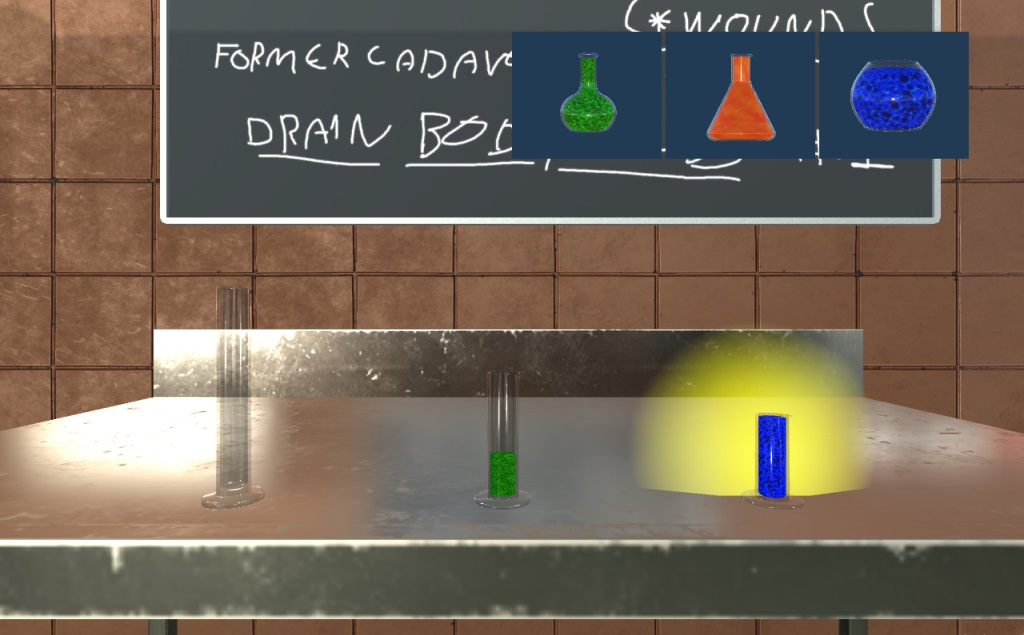 (*WOUNDS
FORMER CADAV
DRAIN BOD